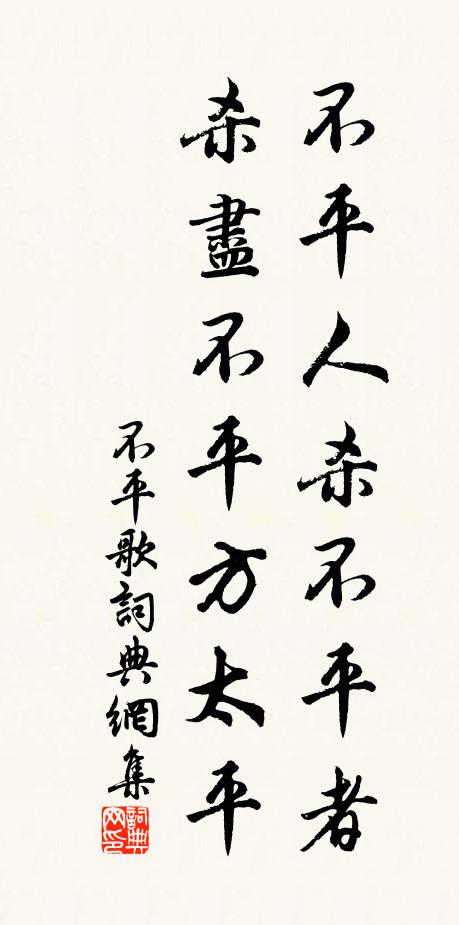 不平人杀不平者
杀盡不平方太平
不平歌詞典網集
詞典网印